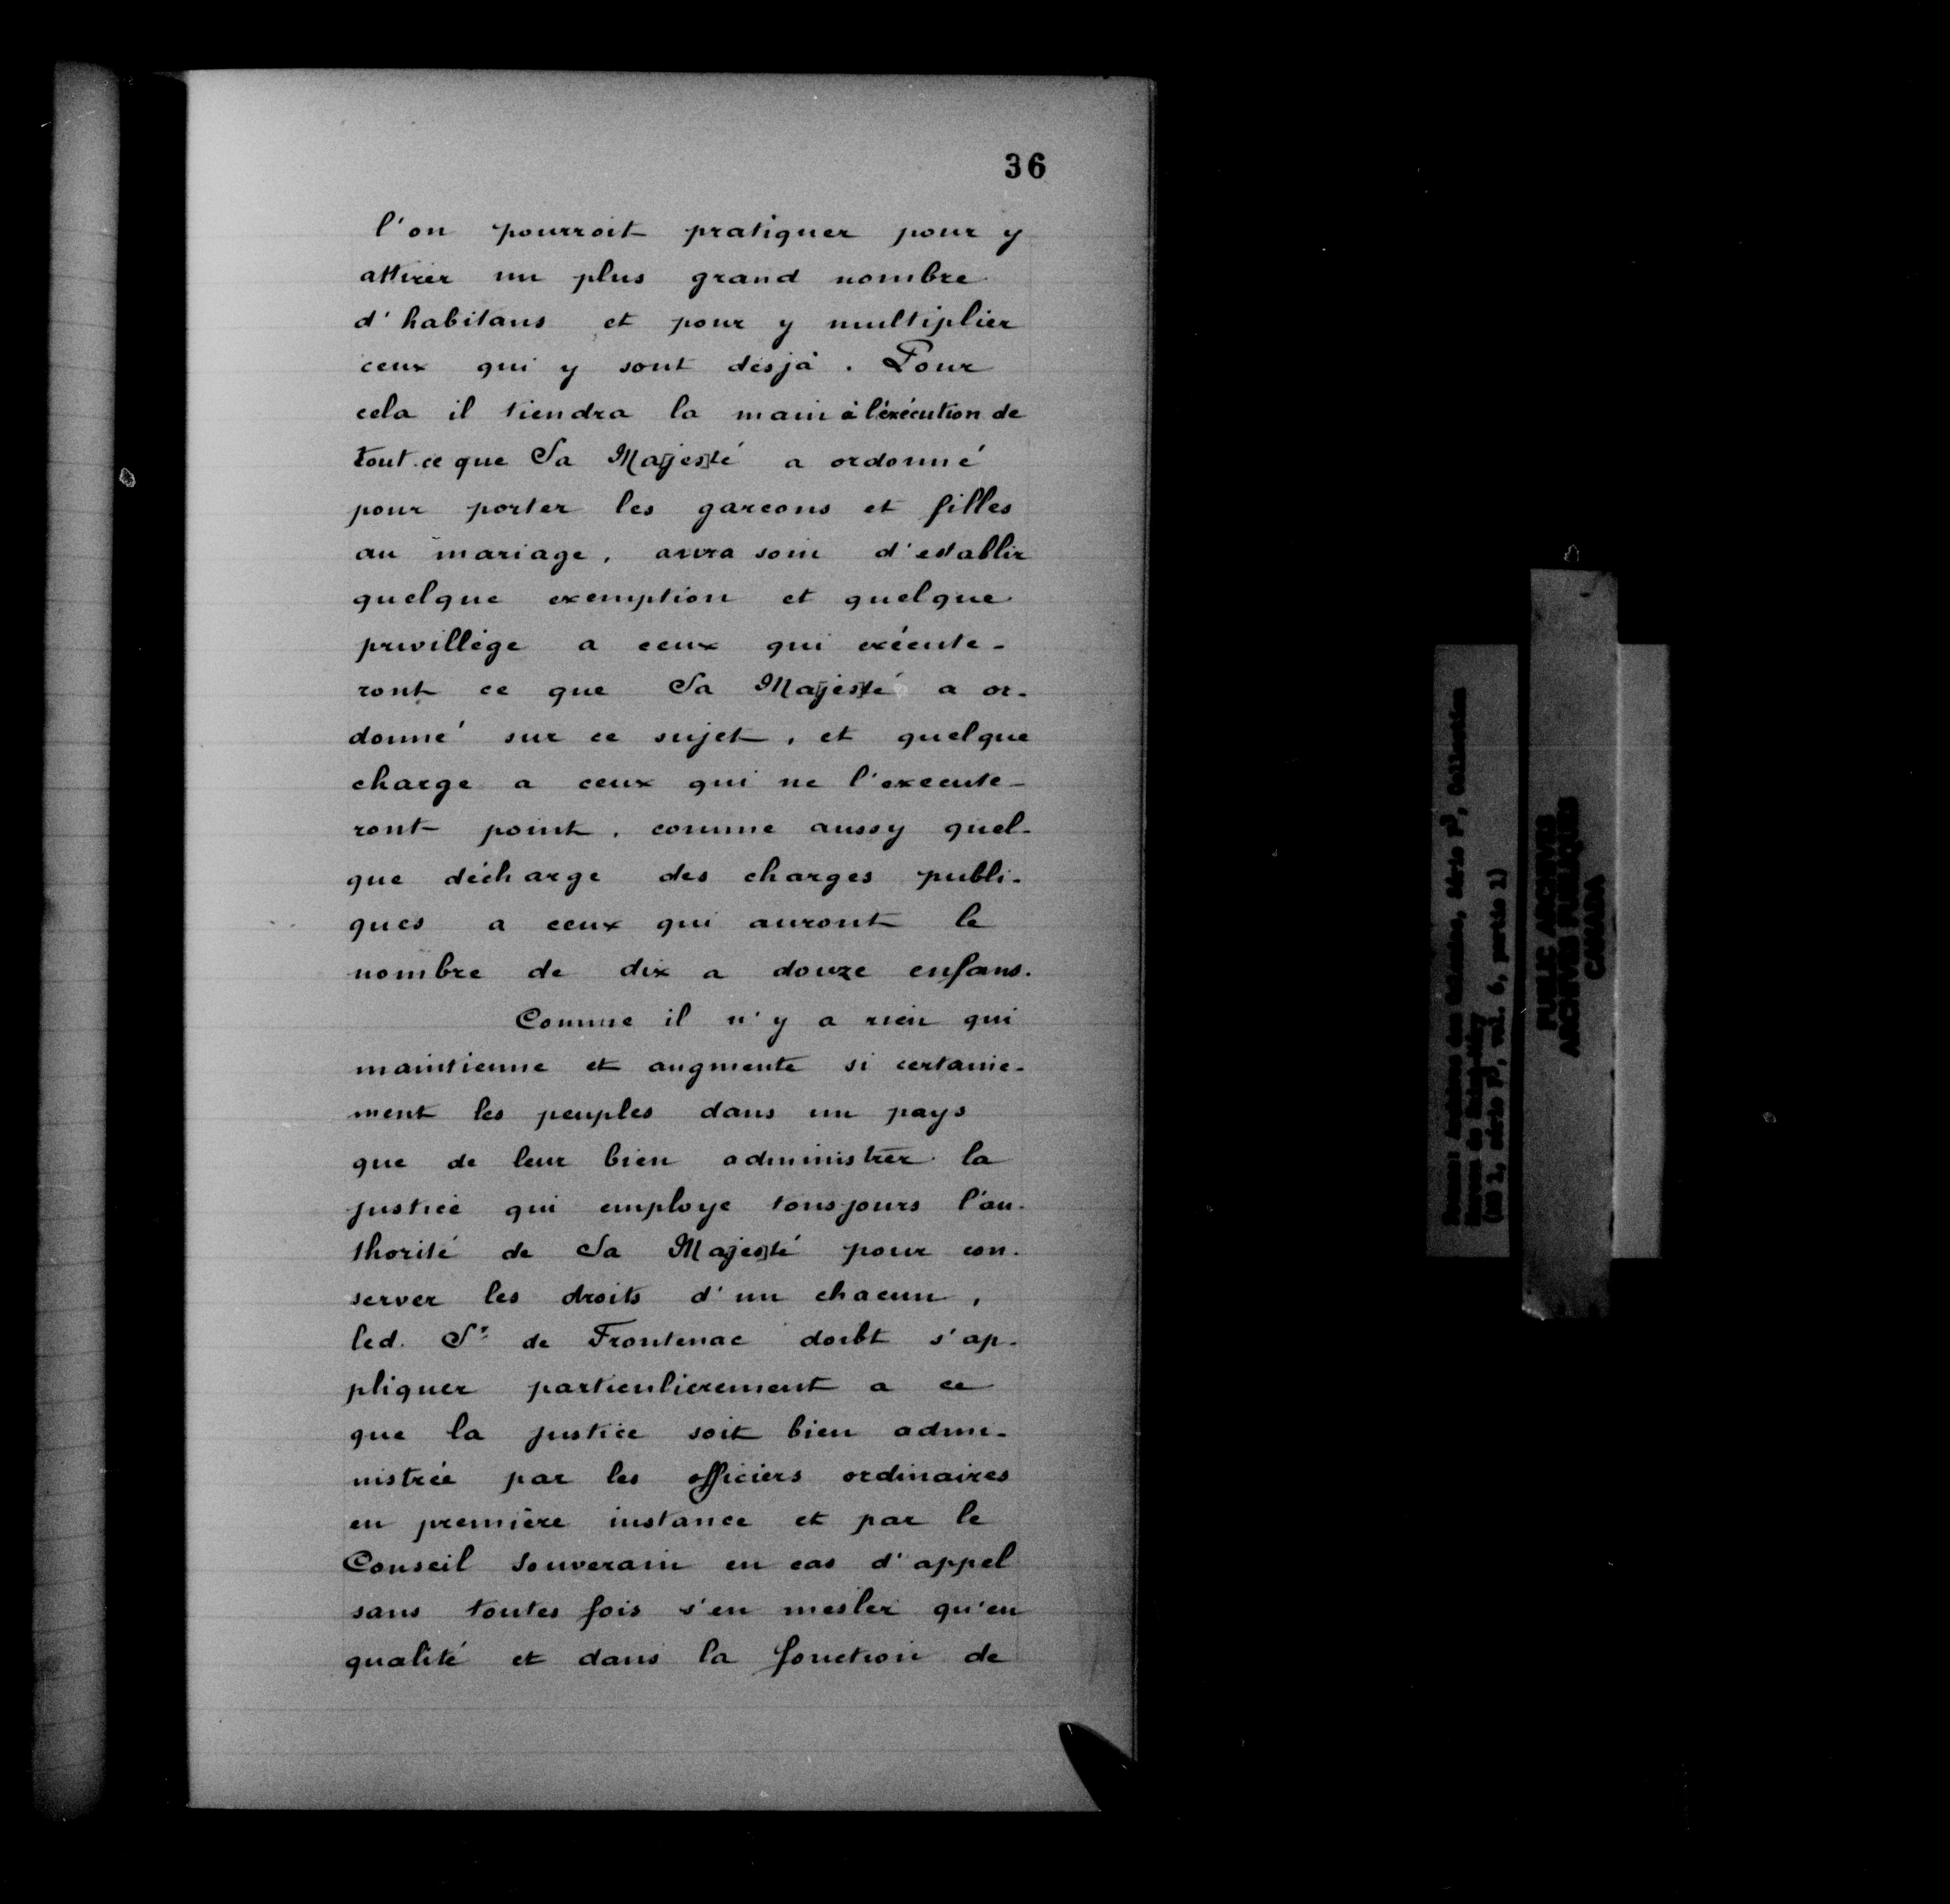 36
l'on pourroit pratiquer pour y
attirer un plus grand nombre
d'habitans et pour y multiplier
ceux qui y sont désjà. Pour
cela il tiendra la main à l'éxécution de
tout ce que Sa Ma[jes]té a ordonné
pour porter les garcons et filles
au mariage, aura soin d'establir
quelque exemption et quelque
privillège a ceux qui exécute-
ront ce que Sa Ma[jes]té a or-
donné sur ce sujet, et quelque
charge a ceux qui ne l'execute-
ront point, comme aussy quel-
que décharge des charges publi-
ques a ceux qui auront le
nombre de dix a douze enfans.
Comme il n'y a rien qui
maintienne et augmente si certaine-
ment les peuples dans un pays
que de leur bien administrer la
justice qui employe tousjours l'au-
thorité de Sa Ma[jes]té pour con-
server les droits d'un chacun,
led. Sr de Frontenac doibt s'ap-
pliquer particulierement a ce
que la justice soit bien admi-
nistrée par les officiers ordinaires
en première instance et par le
Conseil Souverain en cas d'appel
sans toutes fois s'en mesler qu'en
qualité et dans la fonction de
PUBLIC ARCHIVES
ARCHIVES PUBLIQUES
CANADA
Archives des Colonies, Série F3, Collection
Moreau de Saint-Méry
(MG 1, série F3, vol. 6, partie 1)